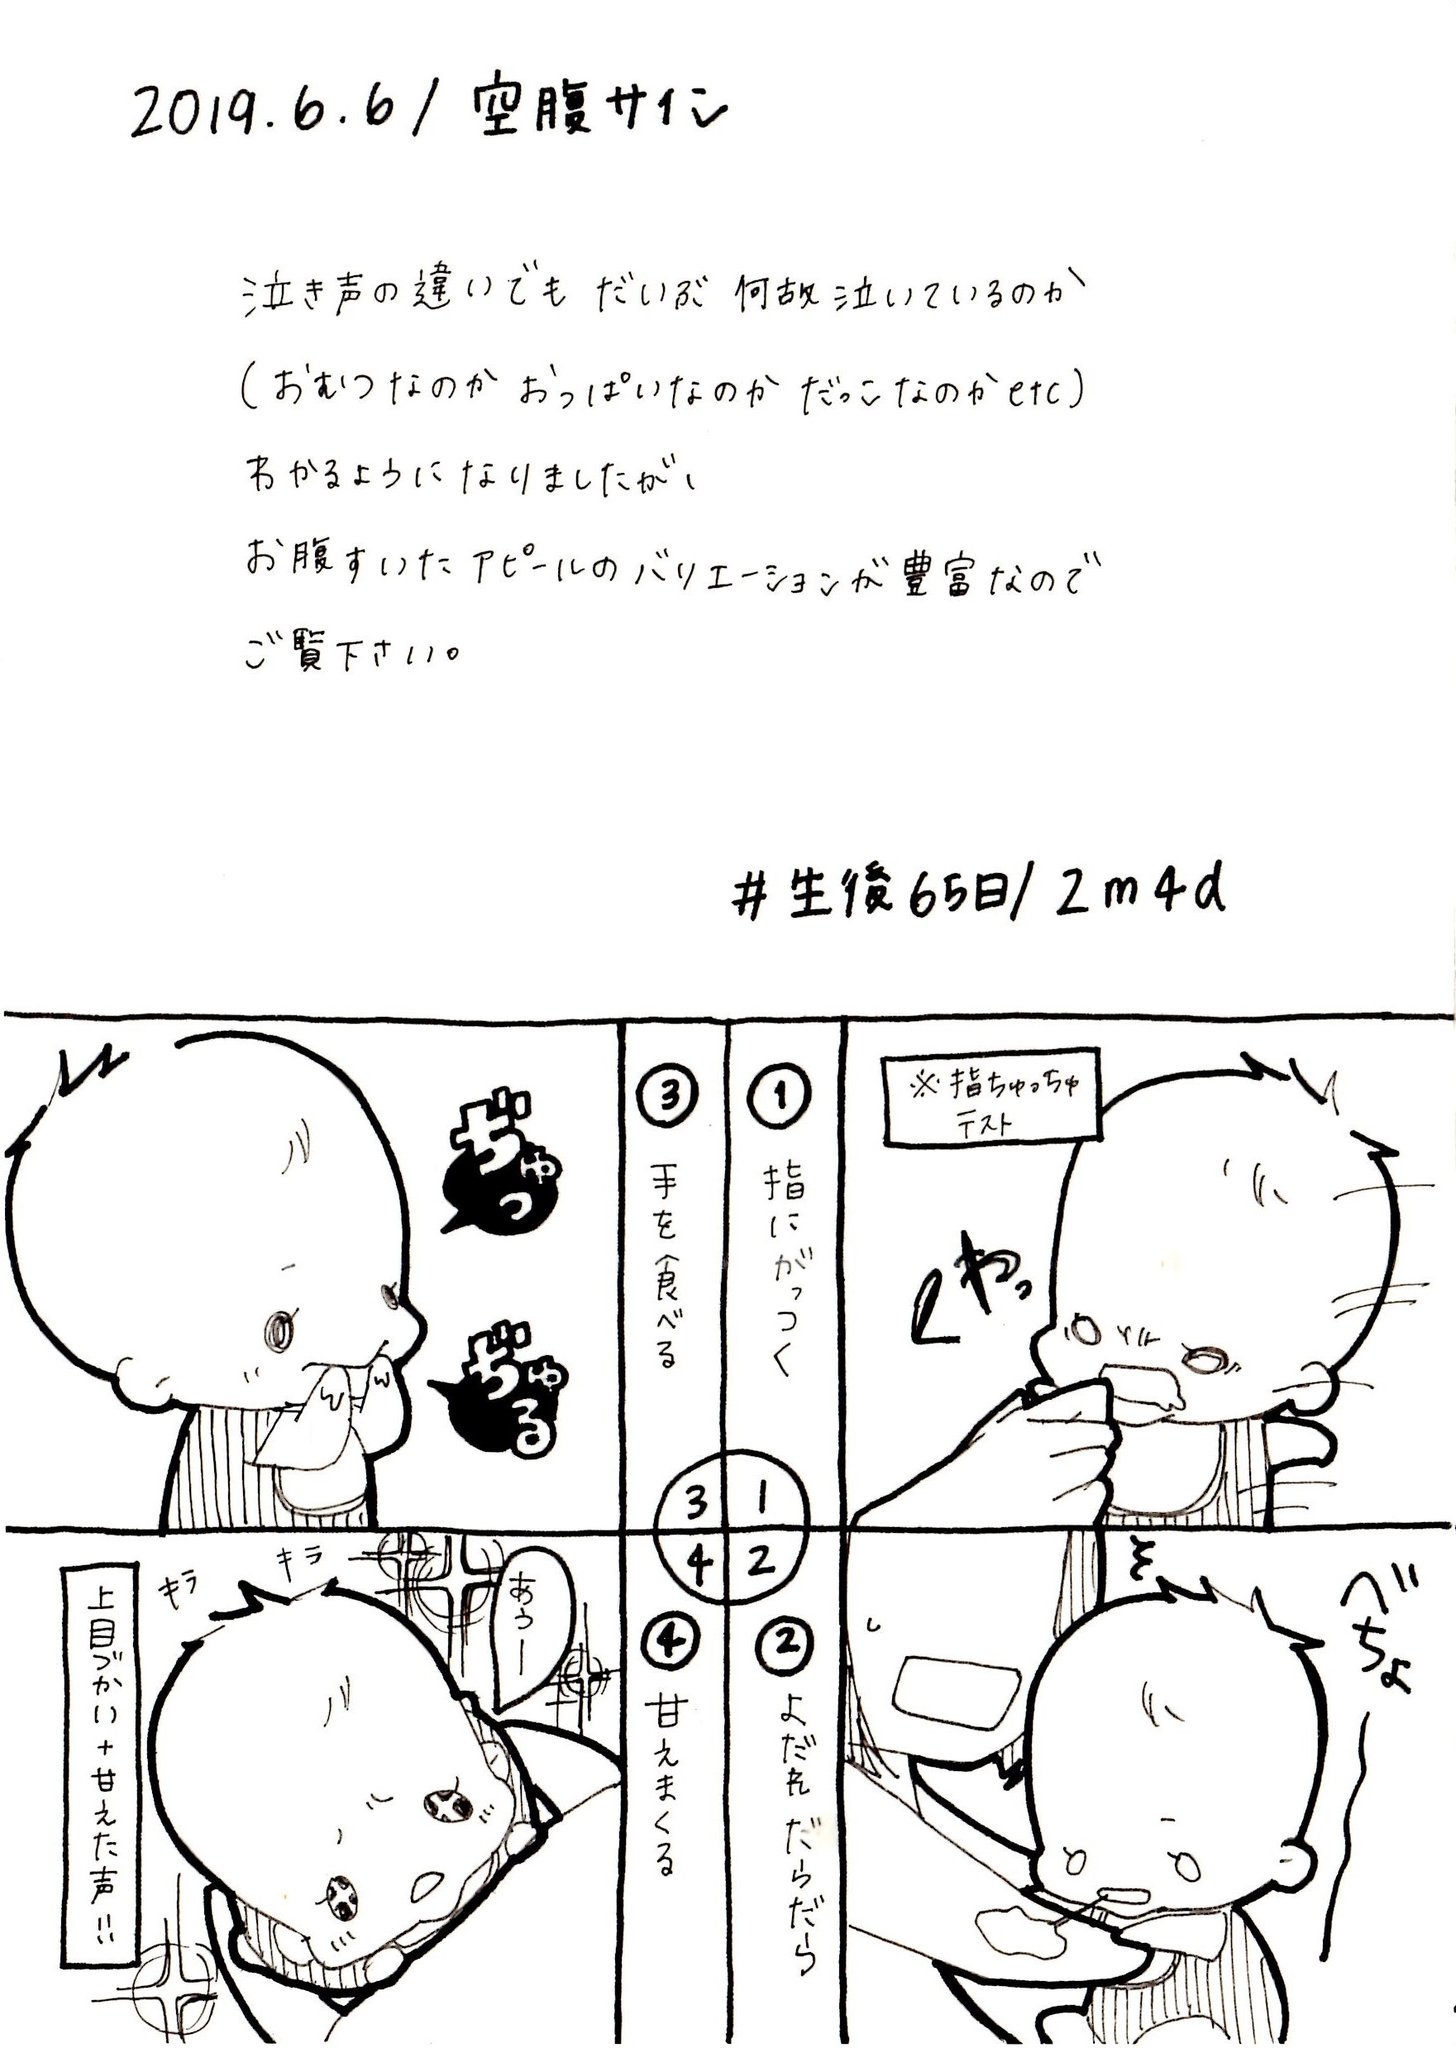 2019.6.6/空腹サイン
泣き声の違いでも だいぶ 何故泣いているのか
(おむつなのか おっぱいなのか だっこなのか etc)
わかるようになりましたが、
お腹すいたアピールのバリエーションが豊富なので
ご覧下さい。
#生後65日/2m4d
① 指にがっつく
※指ちゅっちゅ
テスト
わっ
② よだれだらだら
べちょ
③ 手を食べる
ぢゅっ
ぢゅる
④ 甘えまくる
あうー
キラ
キラ
上目づかい+甘えた声!!
1
2
3
4